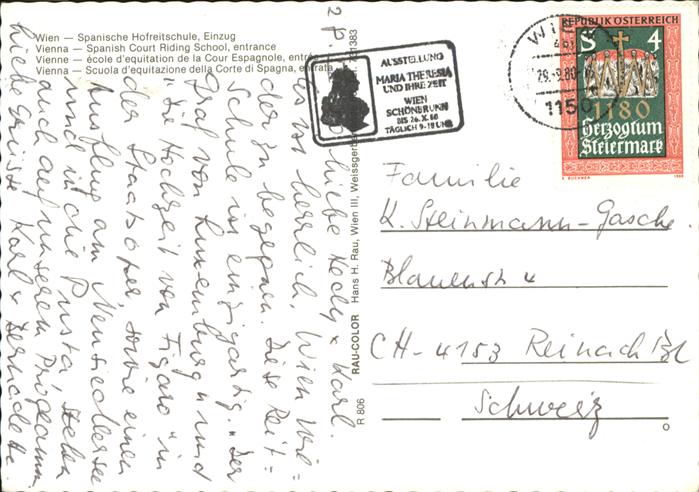 Wien — Spanische Hofreitschule, Einzug
Vienna — Spanish Court Riding School, entrance
Vienne — école d'equitation de la Cour Espagnole, entrée
Vienna — Scuola d'equitazione della Corte di Spagna, entrata
AUSSTELLUNG
MARIA THERESIA
UND IHRE ZEIT
WIEN
SCHÖNBRUNN
BIS 26.X.80
TÄGLICH 9-19 UHR
WIEN
29.-9.80
1150
REPUBLIK ÖSTERREICH
S 4
1180
Herzogtum
Steiermark
1980
Liebe Hedy & Karl.
es ist herrlich, Wien
der zu begegnen. Diese Reit=
schule ist einzigartig. "Der
Graf von Luxemburg" und
"die Hochzeit von Figaro" in
der Staatsoper, sowie einen
Ausflug am Neusiedlersee
und in die Pusta, stehen
auch auf unserem Programm
Liebe Grüsse Karl & Bernadette
RAU-COLOR Hans H. Rau, Wien III, Weissgerber
R 806
Familie
K. Steinmann-Gasche.
Blauenstr 4
CH-4153 Reinach BL
Schweiz